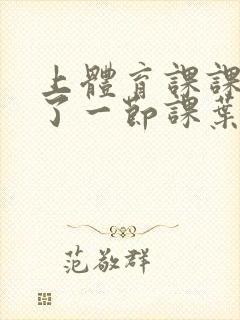 上體育課課
了一節課葉
范敬群